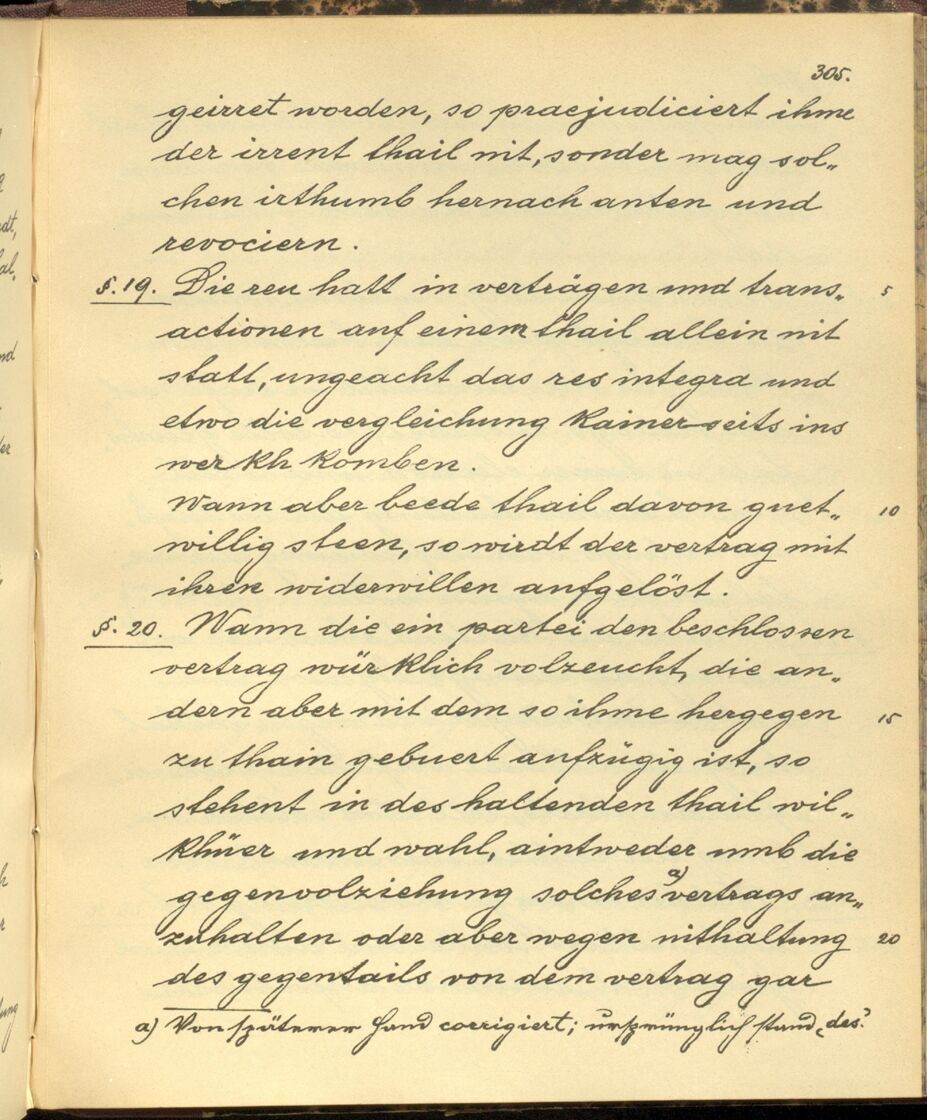 305.
geirret worden, so praejudiciert ihme
der irrent thail nit, sonder mag sol„
chen irthumb hernach anten und
revociern.
§. 19. Die reu hatt in verträgen und trans„ 5
actionen auf einem thail allein nit
statt, ungeacht das res integra und
etwo die vergleichung kainerseits ins
werkh komben.
Wann aber beede thail davon guet„ 10
willig steen, so wirdt der vertrag mit
ihren widerwillen aufgelöst.
§. 20. Wann die ein partei den beschlossen
vertrag würklich volzeucht, die an„
dern aber mit dem so ihme hergegen 15
zu thain gebuert aufzügig ist, so
stehent in des haltenden thail wil„
khüer und wahl, aintweder umb die
gegenvolziehung solches a) vertrags an„
zuhalten oder aber wegen nithaltung 20
des gegentails von dem vertrag gar
a) Von späterer Hand corrigiert; ursprünglich stand „des".